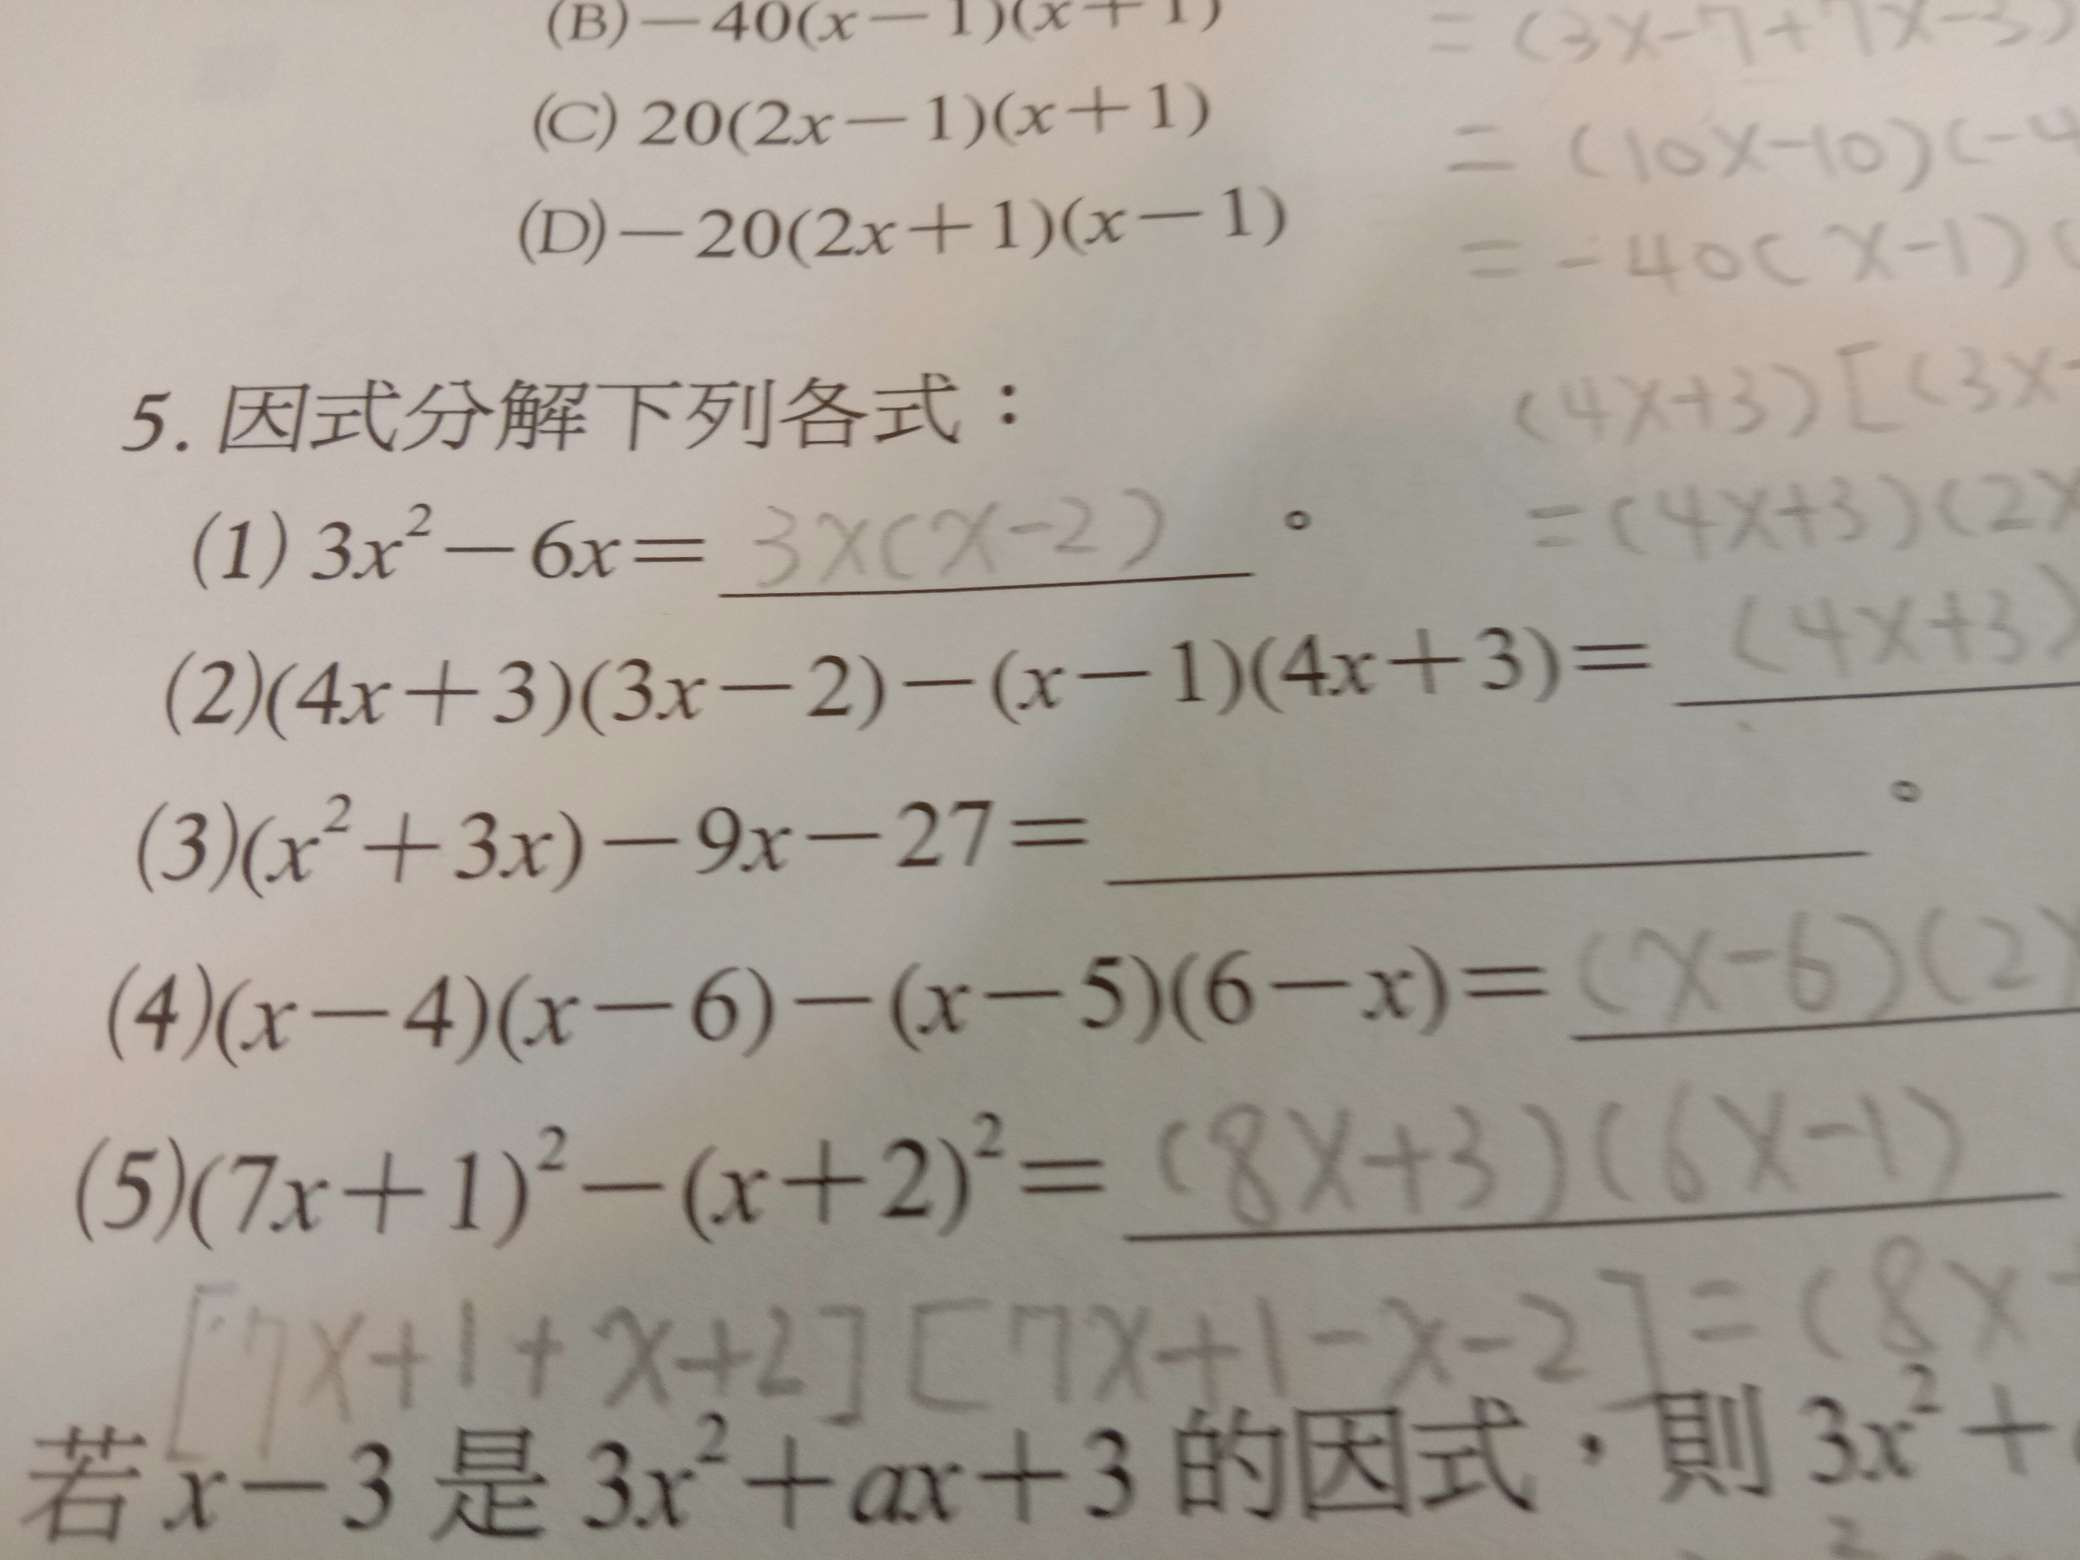 (B)−40(x−1)(x+1)
=(3x-7+7x-3)
(C) 20(2x−1)(x+1)
=(10x-10)(-4
(D)−20(2x+1)(x−1)
=-40(x-1)(
5. 因式分解下列各式：
(4x+3)[(3x-
(1) 3x²−6x= 3x(x-2) 。
=(4x+3)(2x
(2)(4x+3)(3x−2)−(x−1)(4x+3)= (4x+3)
(3)(x²+3x)−9x−27= 。
(4)(x−4)(x−6)−(x−5)(6−x)= (x-6)(2x
(5)(7x+1)²−(x+2)²= (8x+3)(6x-1)
[7x+1+x+2][7x+1-x-2]=(8x+
若 x−3 是 3x²+ax+3 的因式，則 3x²+